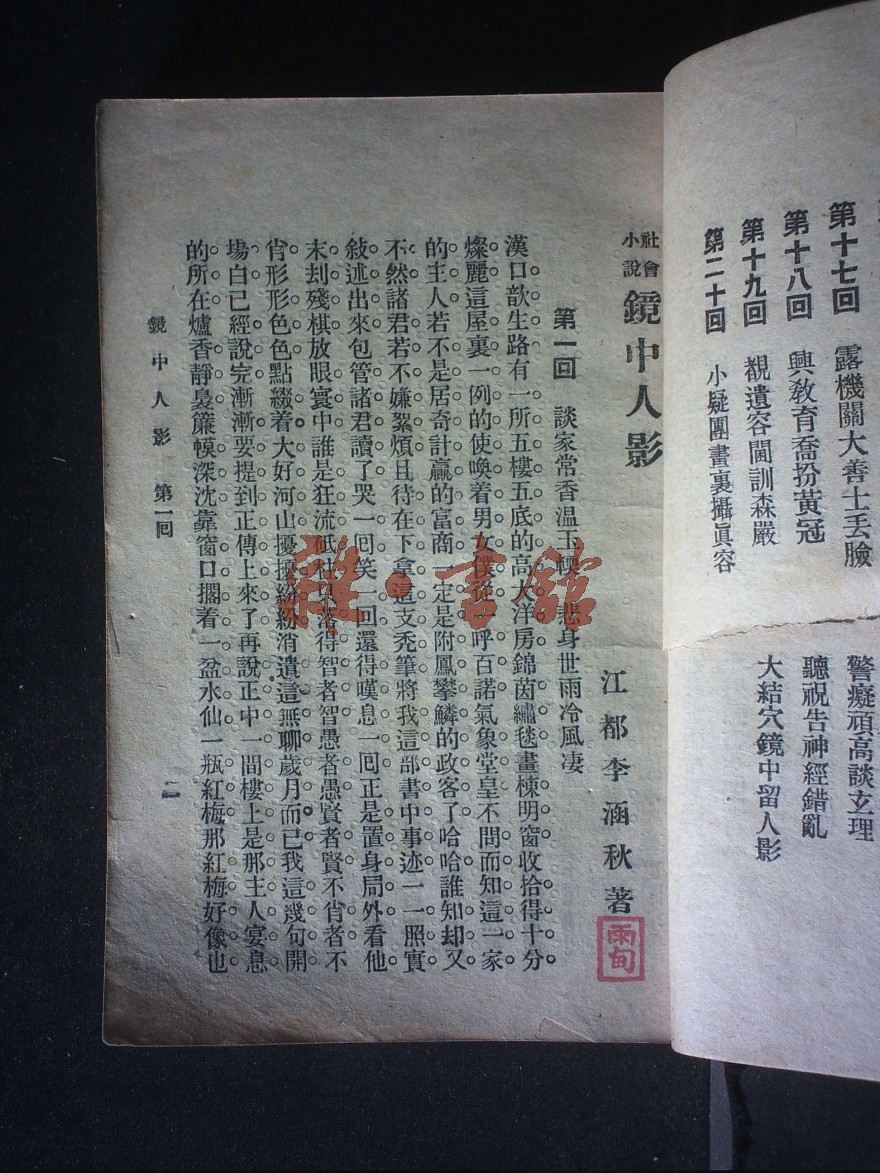 第十七回　露機關大善士丟臉　警癡頑高談玄理
第十八回　興教育喬扮黃冠　聽祝告神經錯亂
第十九回　覩遺容閫訓森嚴
第二十回　小疑團畫裏攝眞容　大結穴鏡中留人影
社會小說 鏡中人影
江都李涵秋著
雨甸
第一回　談家常香温玉輭　悲身世雨冷風凄
漢口歆生路有一所五樓五底的高大洋房錦茵繡毯畫棟明窗收拾得十分
燦麗這屋裏一例的使喚着男女僕從一呼百諾氣象堂皇不問而知這一家
的主人若不是居奇計贏的富商一定是附鳳攀鱗的政客了哈哈誰知却又
不然諸君若不嫌絮煩且待在下拿這支禿筆將我這部書中事迹一一照實
敍述出來包管諸君讀了哭一回笑一回還得嘆息一回正是置身局外看他
末刦殘棋放眼寰中誰是狂流砥柱只落得智者智愚者愚賢者賢不肖者不
肖形形色色點綴着大好河山擾擾紛紛消遣這無聊歲月而已我這幾句開
場白已經說完漸漸要提到正傳上來了再說正中一間樓上是那主人宴息
的所在爐香靜裊簾幙深沈靠窗口擱着一盆水仙一瓶紅梅那紅梅好像也
鏡中人影　第一回
一
雜·書館